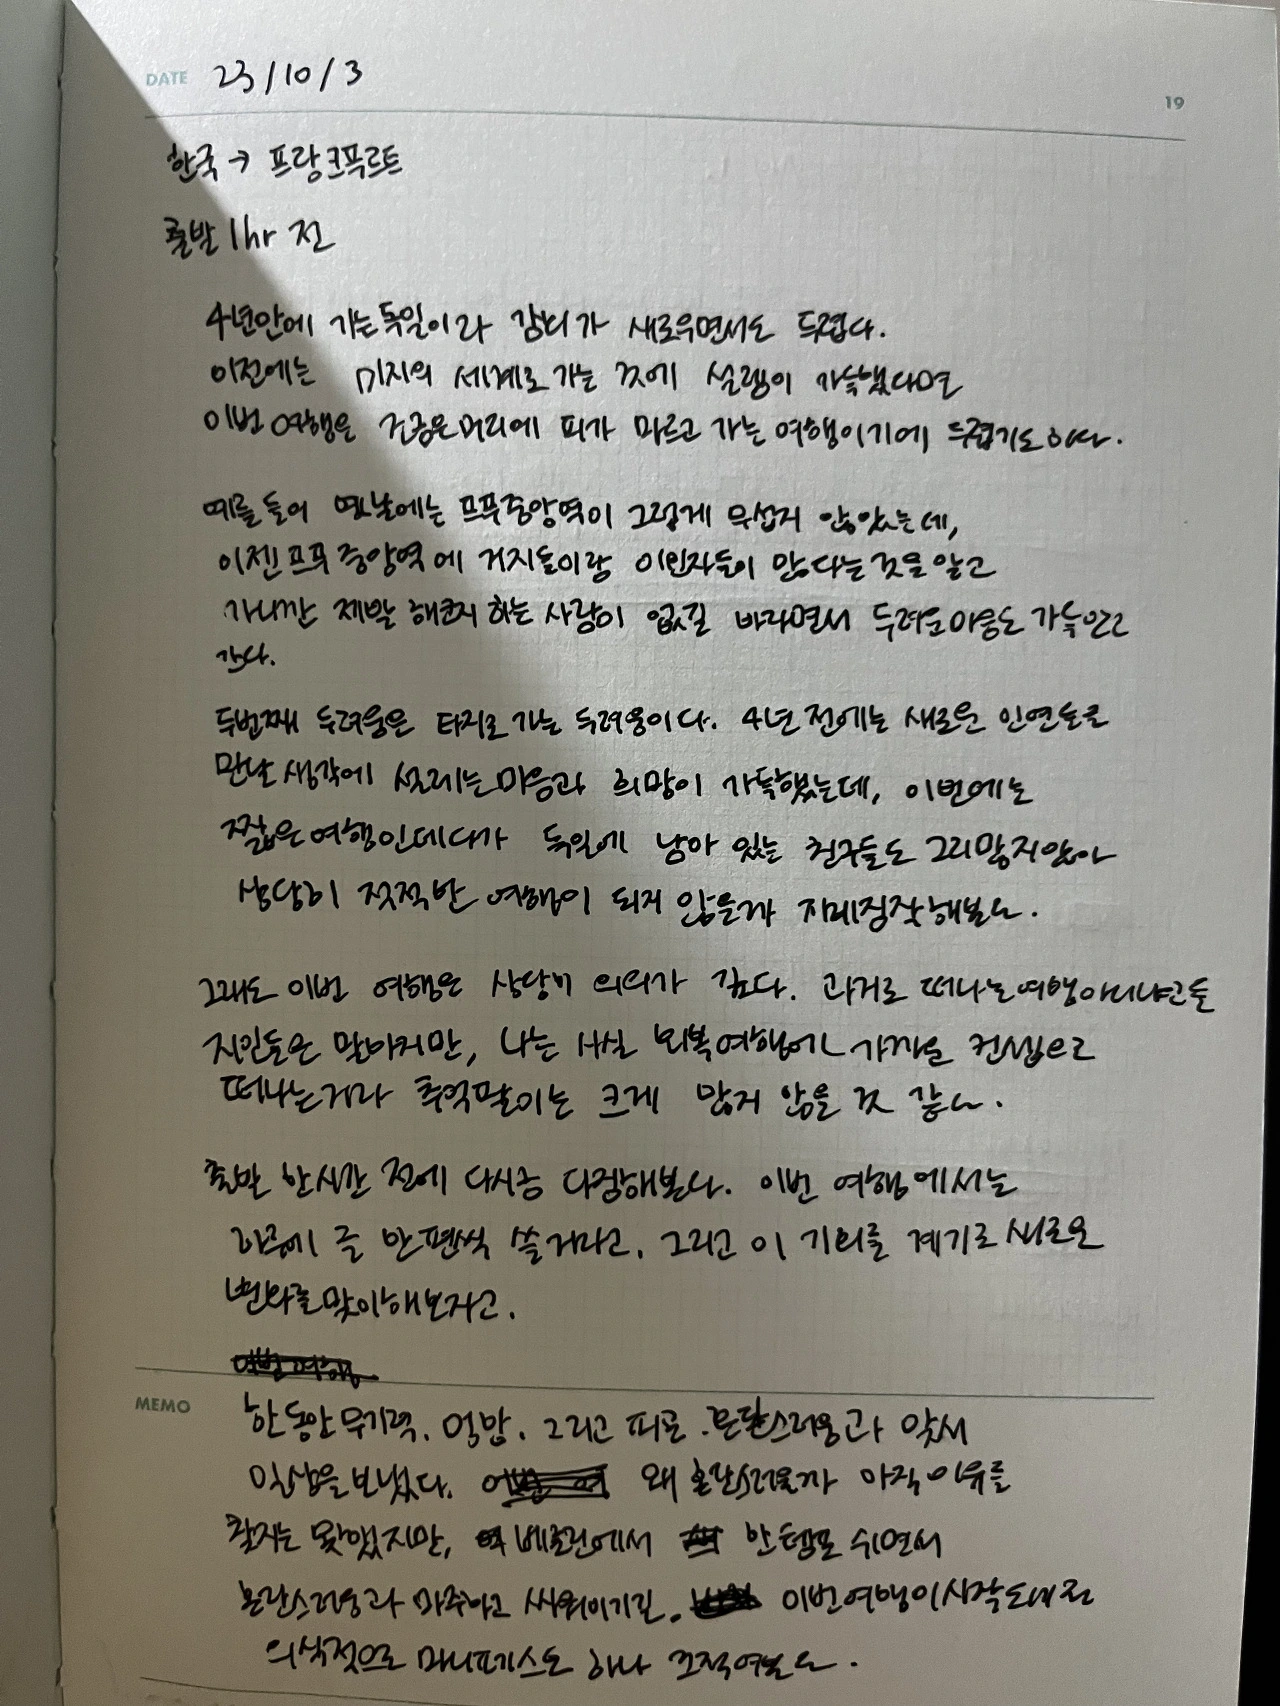 DATE 23/10/3
19
한국 → 프랑크푸르트
출발 1hr 전
4년만에 가는 독일이라 감회가 새로우면서도 두렵다.
이전에는 미지의 세계로 가는 것에 설렘이 가득했다면
이번 여행은 조금은 머리에 피가 마르고 가는 여행이기에 두렵기도 하다.
예를 들어 옛날에는 프푸중앙역이 그렇게 무섭지 않았는데,
이젠 프푸 중앙역에 거지들이랑 이민자들이 많다는 것을 알고
가니깐 제발 해코지 하는 사람이 없길 바라면서 두려운 마음도 가득안고
간다.
두번째 두려움은 타지로 가는 두려움이다. 4년 전에는 새로운 인연들을
만날 생각에 설레는 마음과 희망이 가득했는데, 이번에는
짧은 여행인데다가 독일에 남아 있는 친구들도 그리많지않아
상당히 적적한 여행이 되지 않을까 지레짐작해본다.
그래도 이번 여행은 상당히 의의가 깊다. 과거로 떠나는 여행아니냐고들
지인들은 말하지만, 나는 사실 회복여행에 가까운 컨셉으로
떠나는거라 추억팔이는 크게 많지 않을 것 같다.
출발 한시간 전에 다시금 다짐해본다. 이번 여행에서는
하루에 글 한편씩 쓸거라고. 그리고 이 기회를 계기로 새로운
변화를 맞이해보자고.
MEMO
한동안 무기력, 억압, 그리고 피로, 혼란스러움과 맞서
일상을 보냈다. 왜 혼란스러울까 아직 이유를
찾지는 못했지만, 베를린에서 한템포 쉬면서
혼란스러움과 마주하고 싸워이기길. 이번여행이 시작되기 전
의식적으로 마니페스토 하나 끄적여본다.